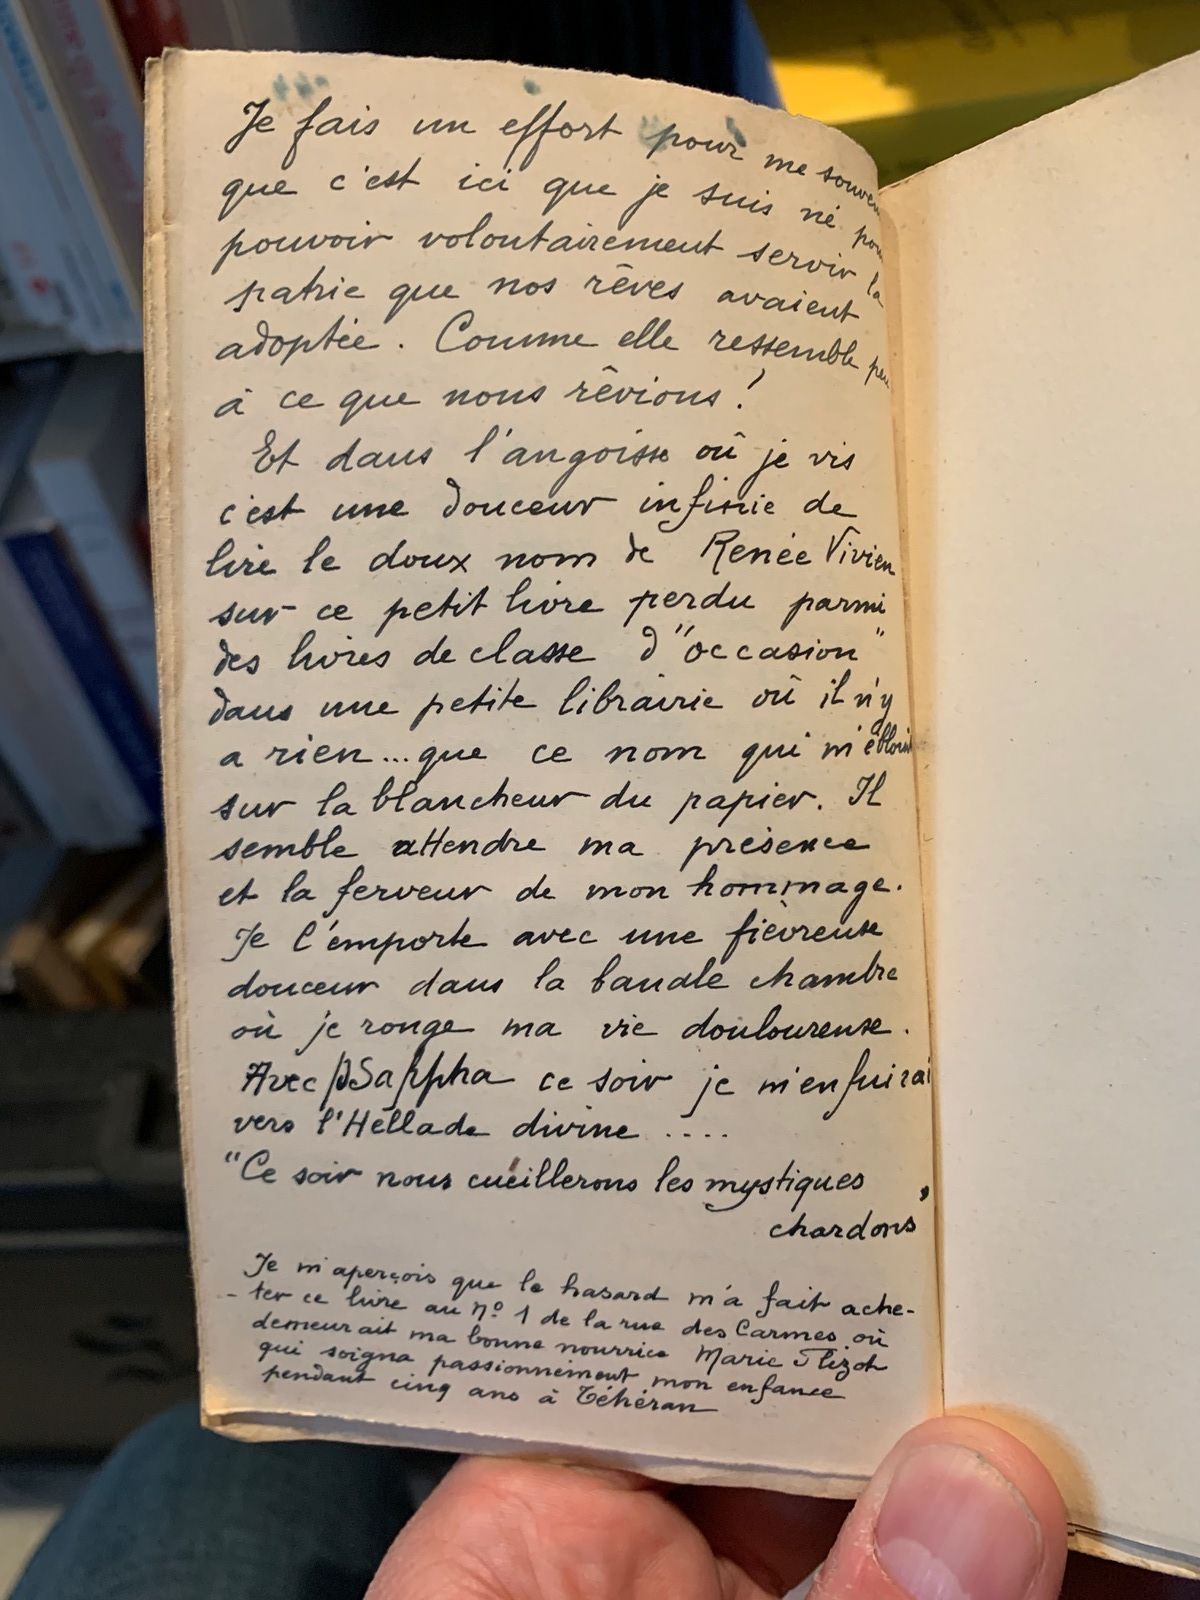 Je fais un effort pour me souven
que c'est ici que je suis né pour
pouvoir volontairement servir la
patrie que nos rêves avaient
adoptée. Comme elle ressemble peu
à ce que nous rêvions !
Et dans l'angoisse où je vis
c'est une douceur infinie de
lire le doux nom de Renée Vivien
sur ce petit livre perdu parmi
des livres de classe d'"occasion"
dans une petite librairie où il n'y
a rien... que ce nom qui m'éblouit
sur la blancheur du papier. Il
semble attendre ma présence
et la ferveur de mon hommage.
Je l'emporte avec une fiévreuse
douceur dans la banale chambre
où je ronge ma vie douloureuse.
Avec Psappha ce soir je m'enfuirai
vers l'Hellade divine ....
"Ce soir nous cueillerons les mystiques
chardons"
Je m'aperçois que le hasard m'a fait ache-
- ter ce livre au Nº 1 de la rue des Carmes où
demeurait ma bonne nourrice Marie
qui soigna passionnément mon enfance
pendant cinq ans à Téhéran